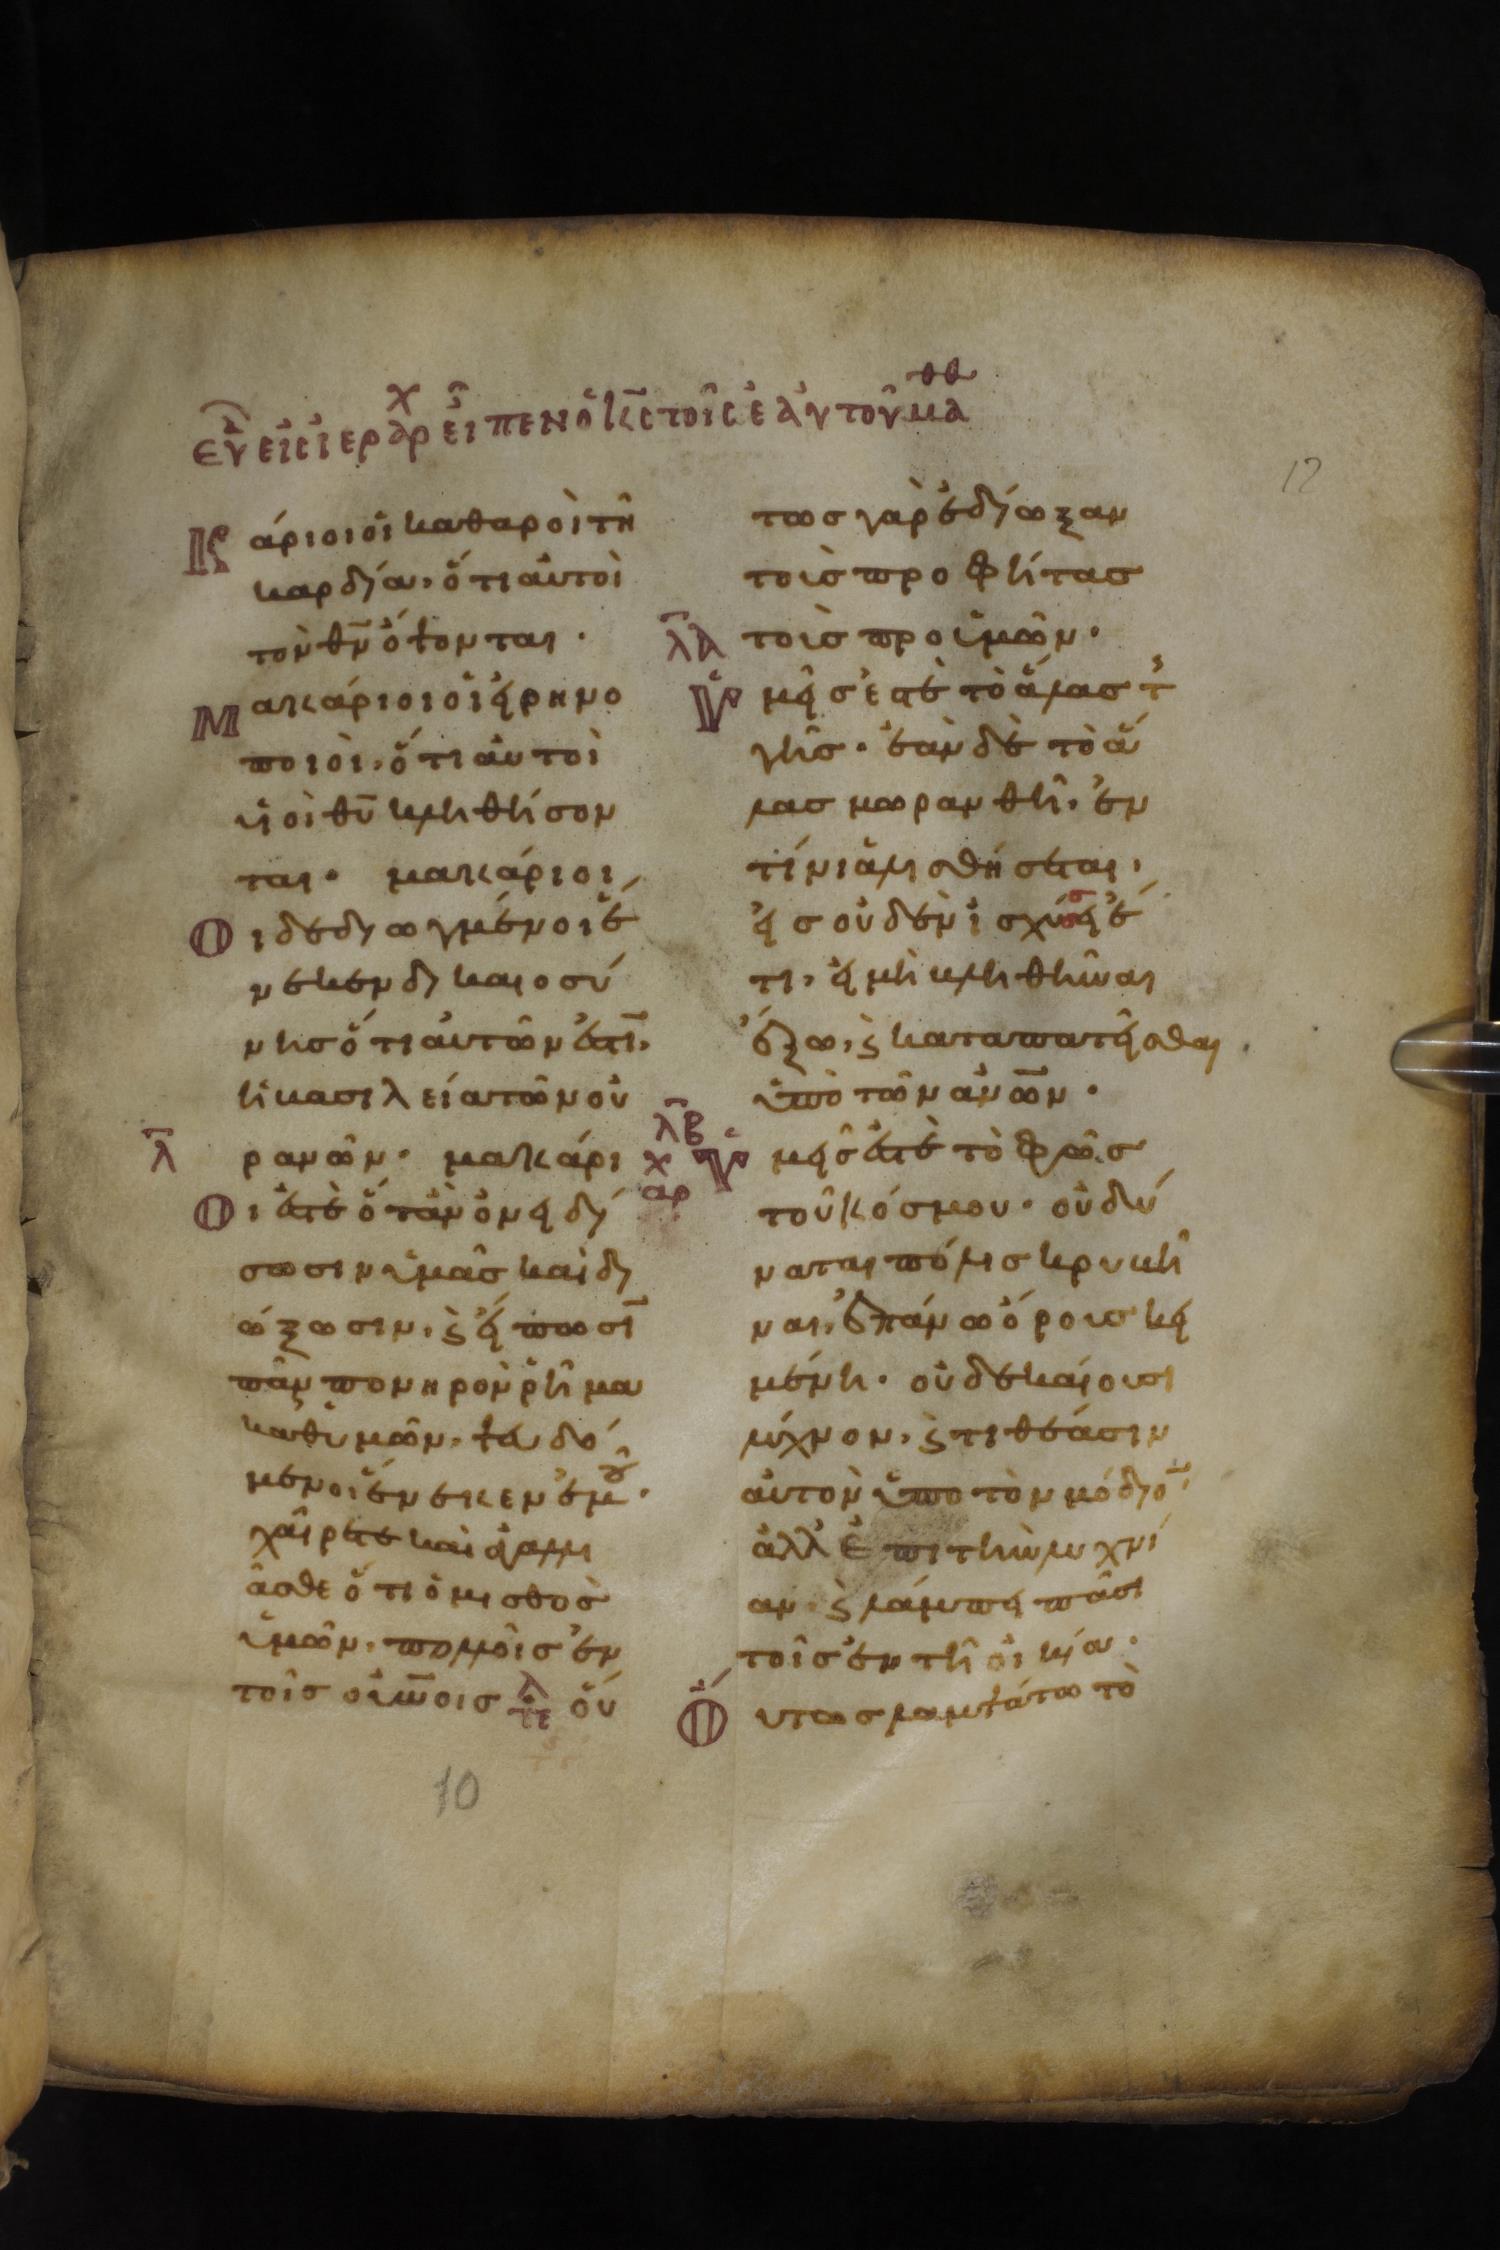 εὐ εἰς ἱερ ἀρ χ εἶπεν ὁ κς τοῖς ἑαυτοῦ μαθθ
12
Κάριοι οἱ καθαροὶ τῆ
καρδία, ὅτι αὐτοὶ
τὸν θν ὄψονται.
Μακάριοι οἱ εἰρηνο
ποιοὶ, ὅτι αὐτοὶ
υἱοὶ θυ κληθήσον
ται. μακάριοι
Οι δεδιωγμένοι ἕ
νεκεν δικαιοσύ
νης ὅτι αὐτῶν ἐστι,
ἡ βασιλεία τῶν οὐ
λ ρανῶν. μακάρι
Οι ἐστὲ ὅταν ὀνειδί
σωσιν ὑμᾶς καὶ δι
ώξωσιν, ϛ εἴπωσι
πᾶν πονηρὸν ῥῆμα
καθ ὑμῶν, ψευδό
μενοι ἕνεκεν ἐμοῦ.
χαίρετε καὶ ἀγαλλι
ᾶσθε ὅτι ὁ μισθὸς
ὑμῶν, πολλοῖς ἐν
τοῖς οὐνοις τελ οὕ
10
τως γὰρ ἐδίωξαν
τοὺς προφήτας
λα τοὺς προ ὑμῶν.
Ὑμεῖς ἐστὲ τὸ ἅλας τ
γῆς. ἐὰν δὲ τὸ ἅ
λας μωρανθῆ, ἐν
τίνι ἁλισθήσεται,
εἰς οὐδὲν ἰσχύσει ἔ
τι, εἰ μὴ κληθῆναι
ἔξω, ϛ καταπατεῖσθαι
ὑπὸ τῶν ανων.
λβ
χ
αρ
Ὑμεῖς ἐστὲ τὸ φῶς
τοῦ κόσμου. οὐ δύ
ναται πόλις κρυβῆ
ναι, ἐπάνω ὄρους κει
μένη. οὐδὲ καίουσι
λύχνον, ϛ τιθέασιν
αὐτὸν ὑπο τὸν μόδιο
ἀλλ ἐπι τὴν λυχνί
αν, ϛ λάμπει πᾶσι
τοῖς ἐν τῆ οἰκία.
Οὕτως λαμψάτω τὸ